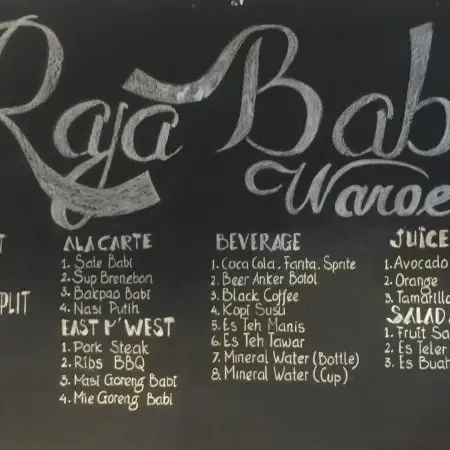 Raja Bab
Waroe
T
PLIT
ALACARTE
1. Sate Babi
2. Sup Brenebon
3. Bakpao Babi
4. Nasi Putih
EAST M' WEST
1. Pork Steak
2. Ribs BBQ
3. Masi Goreng Babi
4. Mie Goreng Babi
BEVERAGE
1. Coca Cola, Fanta, Sprite
2. Beer Anker Botol
3. Black Coffee
4. Kopi Susu
5. Es Teh Manis
6. Es Teh Tawar
7. Mineral Water (Bottle)
8. Mineral Water (Cup)
JUICE
1. Avocado
2. Orange
3. Tamarillo
SALAD
1. Fruit Sa
2. Es Teler
3. Es Buah